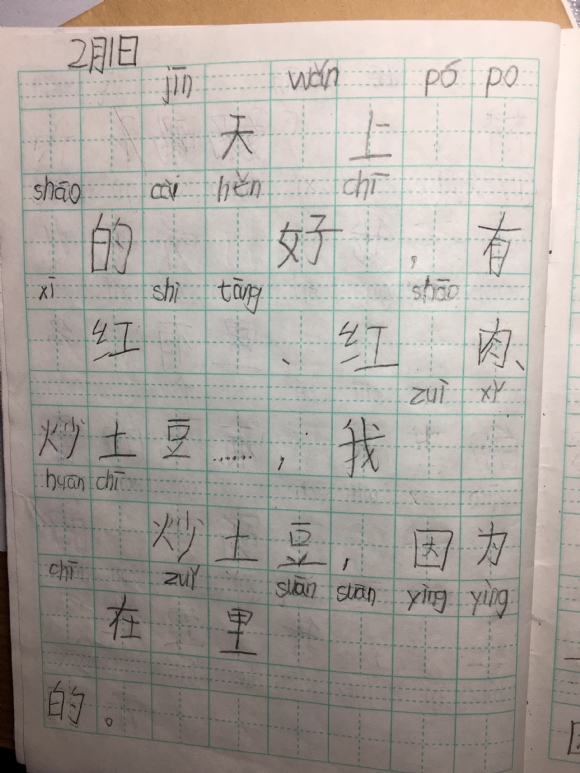 2月1日
jīn wǎn pó po
天 上
shāo cài hěn chī
的 好 ， 有
xī shì tāng shāo
红 、 红 肉、
zuì xǐ
炒土豆……，我
huan chī
炒土豆，因为
chī zuǐ suān suān yìng yìng
在 里
的。